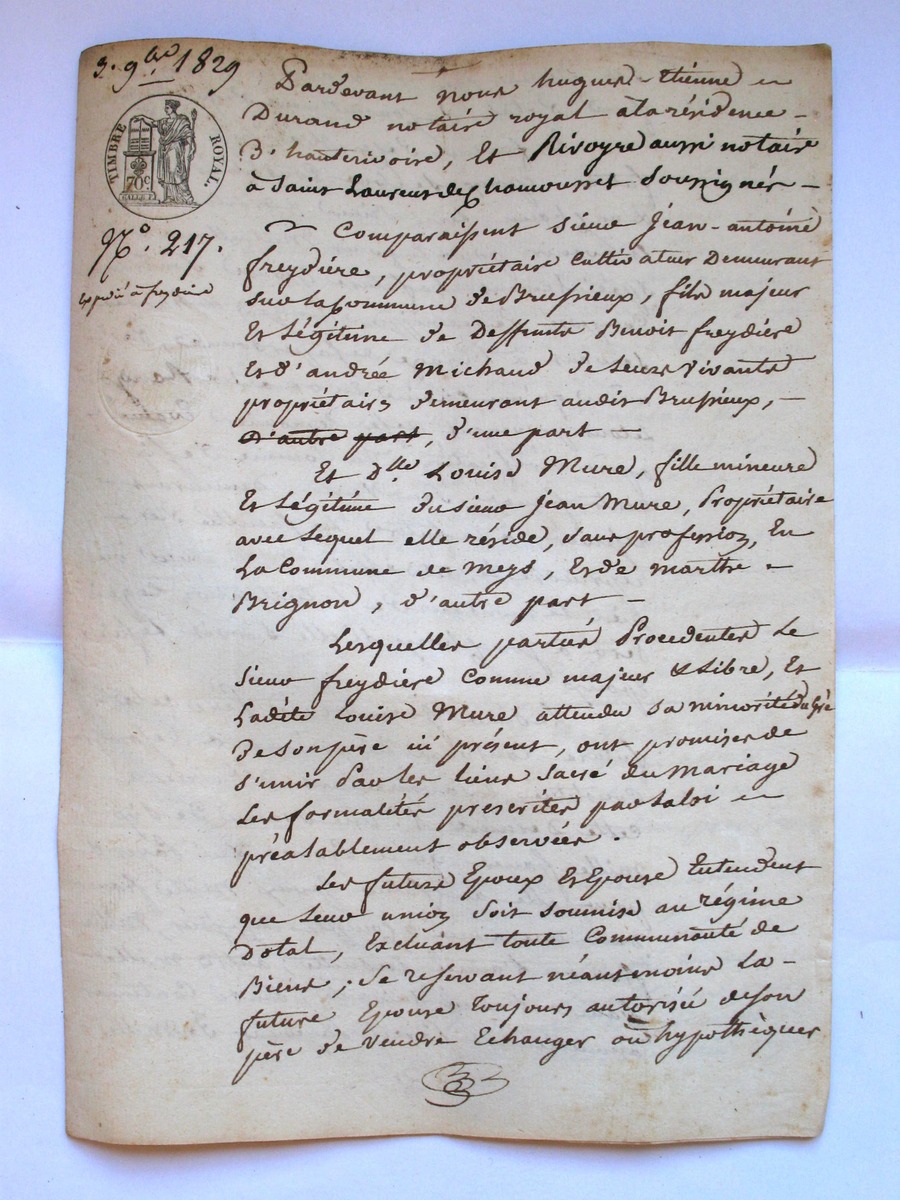 3. 9bre 1829
TIMBRE ROYAL.
70c
N° 217.
Expédié à freydière
Pardevant nous hugues-étienne
Durand notaire royal à la résidence
D'hauterivoire, Et Rivoyre aussi notaire
à Saint Laurent de chamousset Soussignés —
Comparaissent Sieur Jean-antoine
freydière, propriétaire Cultivateur Demeurant
sur la Commune de Brussieux, fils majeur
Et légitime de Deffunts Benoit freydière
Et d'andrée Michaud de leurs vivants
propriétaires demeurant audit Brussieux, —
D'autre part, d'une part —
Et Dlle Louise Mure, fille mineure
Et légitime du sieur Jean Mure, Propriétaire
avec lequel elle réside, sans profession, En
La Commune de Meys, Et de marthe
Brignon, d'autre part —
Lesquelles parties Procedentes Le
Sieur freydière comme majeur & Libre, Et
Ladite Louise Mure attendu sa minorité du gré
De son père ici présent, ont promis de
S'unir Par les liens sacré du Mariage
Les formalités prescrites par la loi
préalablement observées.
Les futurs Epoux Et Epouse Entendent
que leur union soit soumise au régime
Dotal, Excluant toute Communauté de
Biens ; Se reservant néantmoins La —
future Epouse Toujours autorisé de son
père de Vendre Echanger ou hypothèquer